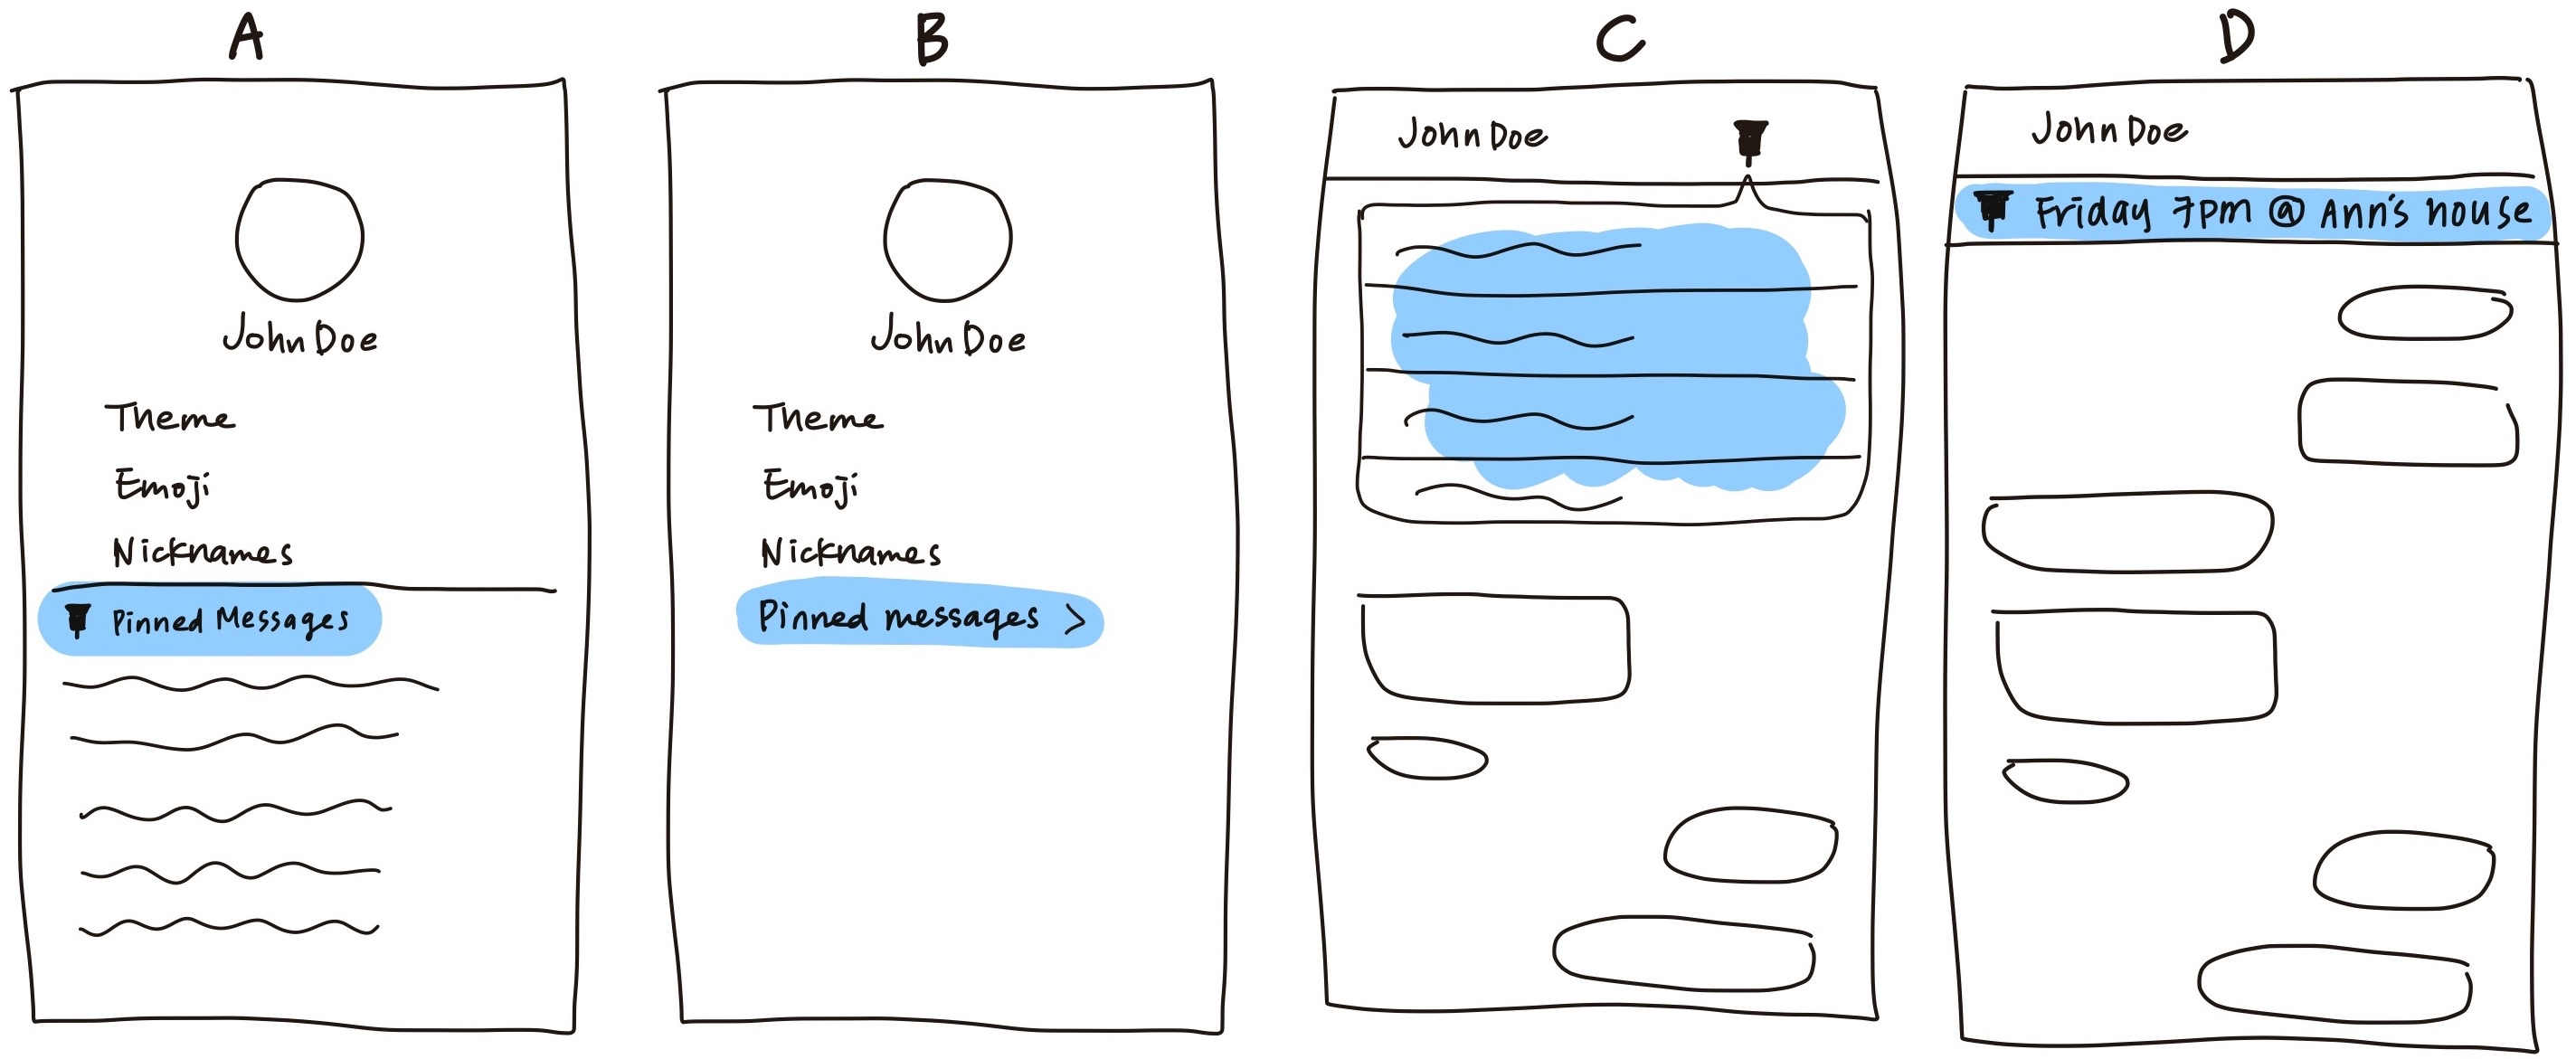 A
John Doe
Theme
Emoji
Nicknames
Pinned Messages
B
John Doe
Theme
Emoji
Nicknames
Pinned messages >
C
John Doe
D
John Doe
Friday 7pm @ Ann's house